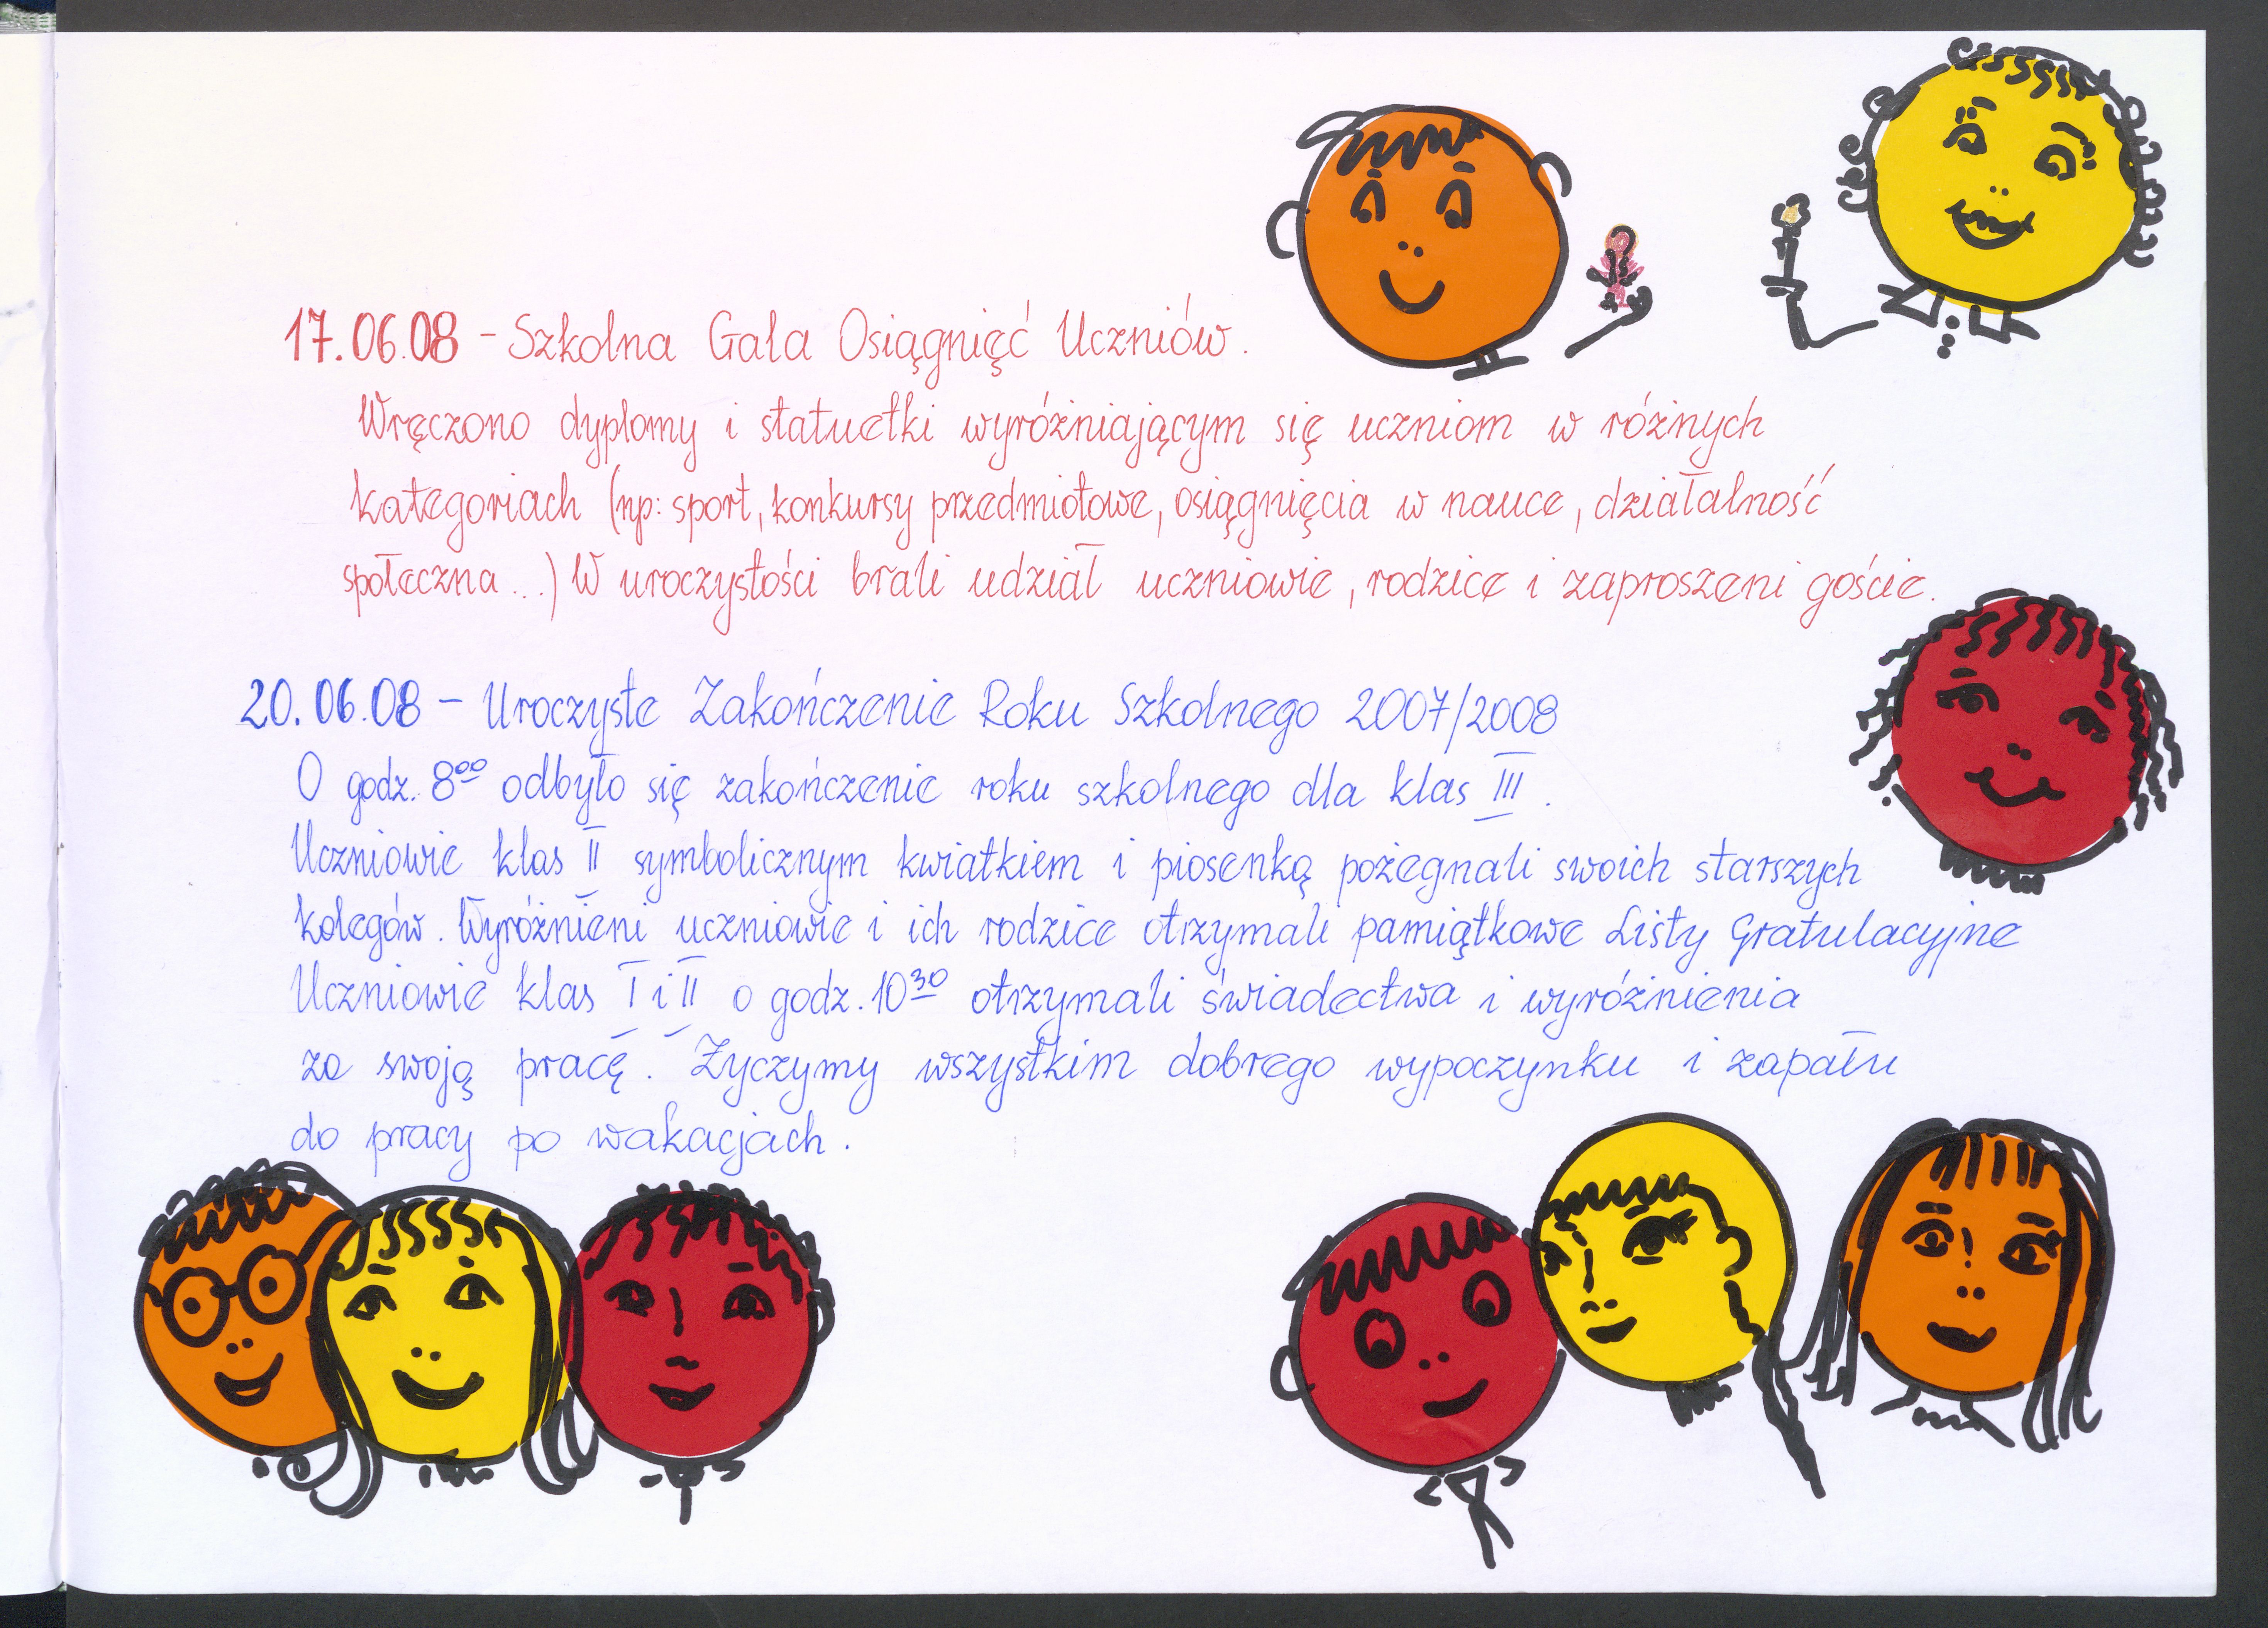 17.06.08 - Szkolna Gala Osiągnięć Uczniów.
Wręczono dyplomy i statuetki wyróżniającym się uczniom w różnych
kategoriach (np: sport, konkursy przedmiotowe, osiągnięcia w nauce, działalność
społeczna...) W uroczystości brali udział uczniowie, rodzice i zaproszeni goście.
20.06.08 - Uroczyste Zakończenie Roku Szkolnego 2007/2008
O godz. 8⁰⁰ odbyło się zakończenie roku szkolnego dla klas III.
Uczniowie klas II symbolicznym kwiatkiem i piosenką pożegnali swoich starszych
kolegów. Wyróżnieni uczniowie i ich rodzice otrzymali pamiątkowe Listy Gratulacyjne
Uczniowie klas I i II o godz. 10³⁰ otrzymali świadectwa i wyróżnienia
za swoją pracę. Życzymy wszystkim dobrego wypoczynku i zapału
do pracy po wakacjach.